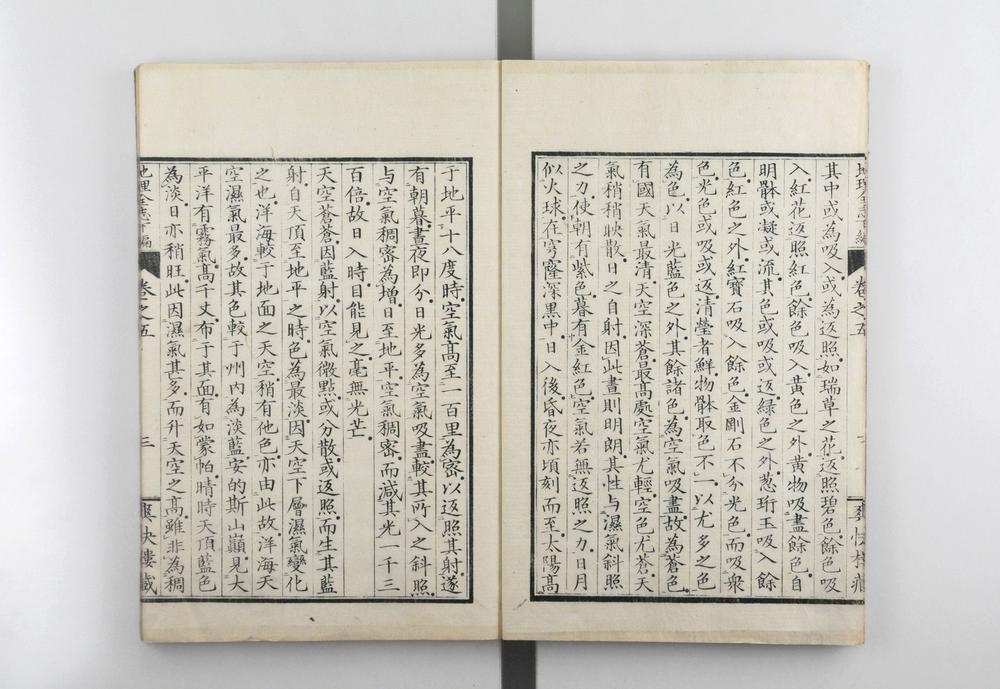 其中或為吸入或為返照如瑞草之花返照碧色餘色吸
入紅花返照紅色餘色吸入黄色之外黄物吸盡餘色自
明骵或凝或流其色或吸或返緑色之外葱珩玉吸入餘
色紅色之外紅寶石吸入餘色金剛石不分光色而吸衆
色光色或吸或返清瑩者鮮物骵取色不一以尤多之色
為色以日光藍色之外其餘諸色為空氣吸盡故為蒼色
有國天氣最清天空深蒼最高處空氣尤輕空色尤蒼天
氣稍稍映散日之自射因此晝則明朗其性与濕氣斜照
之力使朝有紫色暮有金紅色空氣若無返照之力日月
似火球在穹窿深黑中日入後昏夜亦頃刻而至太陽高
于地平十八度時空氣高至一百里為密以返照其射遂
有朝暮晝夜即分日光多為空氣吸盡較其所入之斜照
与空氣稠密為增日至地平空氣稠密而減其光一千三
百倍故日入時目能見之毫無光芒
天空蒼蒼因藍射以空氣微點或分散或返照而生其藍
射自天頂至地平之時色為最淡因天空下層濕氣變化
之也洋海較于地面之天空稍有他色亦由此故洋海天
空濕氣最多故其色較于州内為淡藍安的斯山巔見大
平洋有霧氣高千丈布于其面有如蒙帕晴時天頂藍色
為淡日亦稍旺此因濕氣甚多而升天空之高雖非為稠
地理全志下編
卷之五
三
爽快樓藏